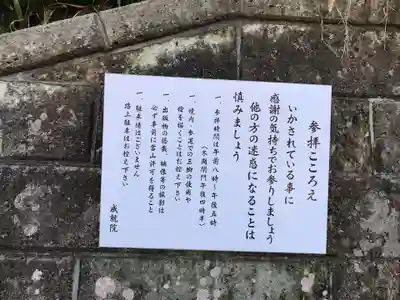 参拝こころえ
いかされている事に
感謝の気持ちでお参りしましょう
他の方の迷惑になることは
慎みましょう
一、参拝時間は午前八時〜午後五時
（冬期閉門午後四時半）
一、境内・参道での三脚の使用や
絵を描くことはお控え下さい
一、出版物の掲載、映像等の撮影は
必ず事前に当山許可を得ること
一、駐車場はございません
路上駐車はお控え下さい
成就院